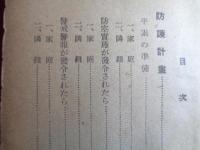 目次
防護計畫
平素の準備
一、家庭
二、隣組
防空實施が發令されたら…
一、家庭
二、隣組
警戒警報が發令されたら…
一、家庭
二、隣組